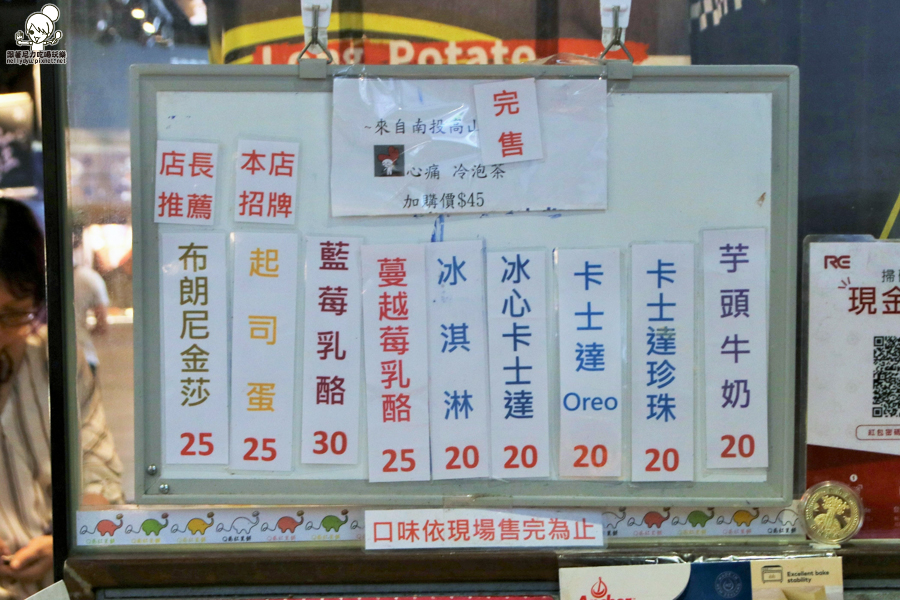 跟著尼力吃喝玩樂
nellydyu.pixnet.net
Long Potato
完售
~來自南投高山
心痛 冷泡茶
加購價$45
店長推薦
本店招牌
布朗尼金莎 25
起司蛋 25
藍莓乳酪 30
蔓越莓乳酪 25
冰淇淋 20
冰心卡士達 20
卡士達Oreo 20
卡士達珍珠 20
芋頭牛奶 20
口味依現場售完為止
掃
現金
紅包密碼
Excellent bake stability